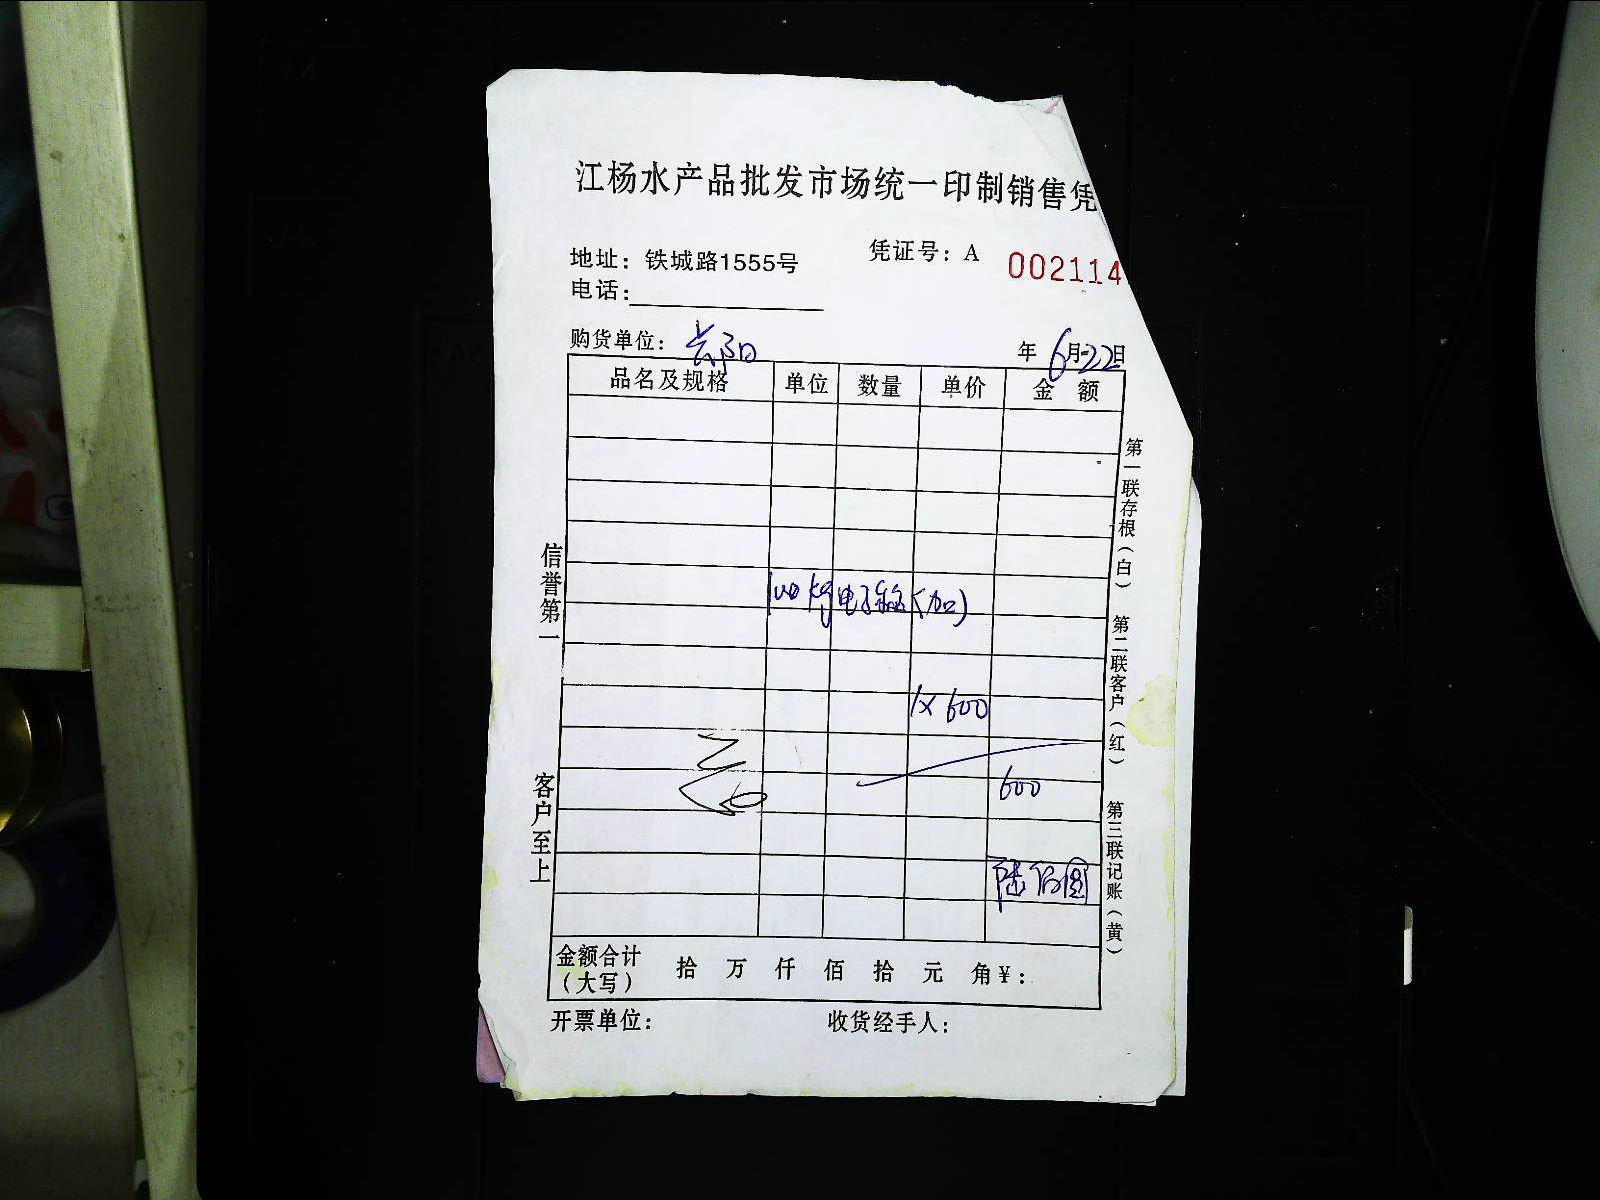 江杨水产品批发市场统一印制销售凭
地址：铁城路1555号
凭证号：A 002114
电话：
购货单位：
年 6月22日
品名及规格 单位 数量 单价 金 额
电子称(加)
1×600
600
陆佰圆
金额合计（大写） 拾 万 仟 佰 拾 元 角 ¥：
开票单位： 收货经手人：
信誉第一 客户至上
第一联存根（白） 第二联客户（红） 第三联记账（黄）